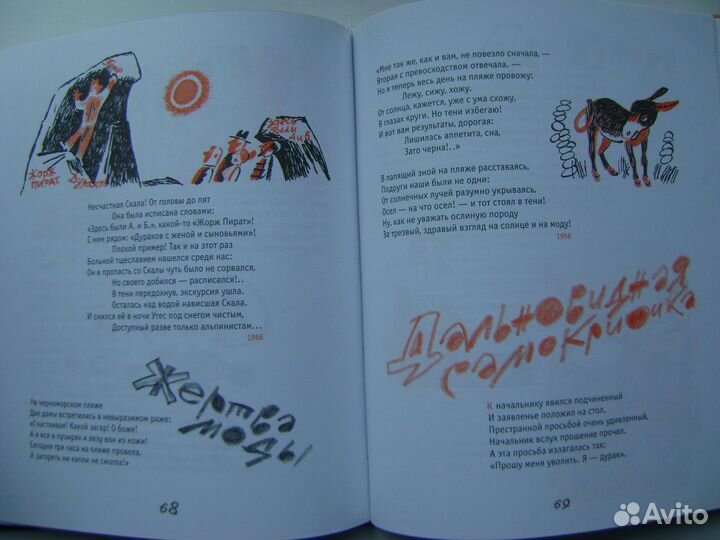 Пётр
ЖОРЖ
ПИРАТ
Дураков
ЗДЕСЬ
БЫЛИ
А и Б
Несчастная Скала! От головы до пят
Она была исписана словами:
«Здесь были А. и Б.», какой-то «Жорж Пират»!
С ним рядом: «Дураков с женой и сыновьями»!
Плохой пример! Так и на этот раз
Больной тщеславием нашелся среди нас:
Он в пропасть со Скалы чуть было не сорвался,
Но своего добился — расписался!..
В тени передохнув, экскурсия ушла.
Осталась над водой нависшая Скала.
И снился ей в ночи Утес под снегом чистым,
Доступный разве только альпинистам...
1956
Жертва
моды
На черноморском пляже
Две дамы встретились в невыразимом раже:
«Счастливая! Какой загар! О боже!
А я вся в пузырях и лезу вон из кожи!
Сегодня три часа на пляже провела,
А загореть ни капли не смогла!»
68
«Мне так же, как и вам, не повезло сначала, —
Вторая с превосходством отвечала. —
Но я теперь весь день на пляже провожу:
Лежу, сижу, хожу.
От солнца, кажется, уже с ума схожу,
В глазах круги. Но тени избегаю!
И вот вам результаты, дорогая:
Лишилась аппетита, сна,
Зато черна!..»
В палящий зной на пляже расставаясь,
Подруги наши были не одни:
От солнечных лучей разумно укрываясь,
Осел — на что осел! — и тот стоял в тени!
Ну, как не уважать ослиную породу
За трезвый, здравый взгляд на солнце и на моду!
1956
Дальновидная
самокритика
К начальнику явился подчиненный
И заявленье положил на стол.
Престранной просьбой очень удивленный,
Начальник вслух прошение прочел.
А эта просьба излагалась так:
«Прошу меня уволить. Я — дурак».
69
Avito